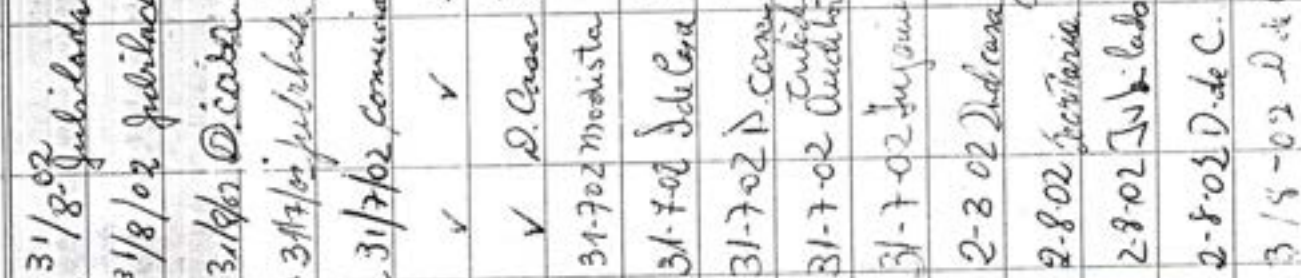 31/8-02 Jubilada
31/8/02 Jubilad
31/8/02 D. casa
31/7/02 jubilada
31/7/02 Comercia
✓ ✓
✓ D. Casa
31-702 Modista
31-7-02 D de Casa
31-7-02 D. casa
31-7-02
31-7-02
2-8 02 D de casa
2-8-02 Secretaria
2-8-02 Jubilado
2-8-02 D. de C.
3/8-02 D de